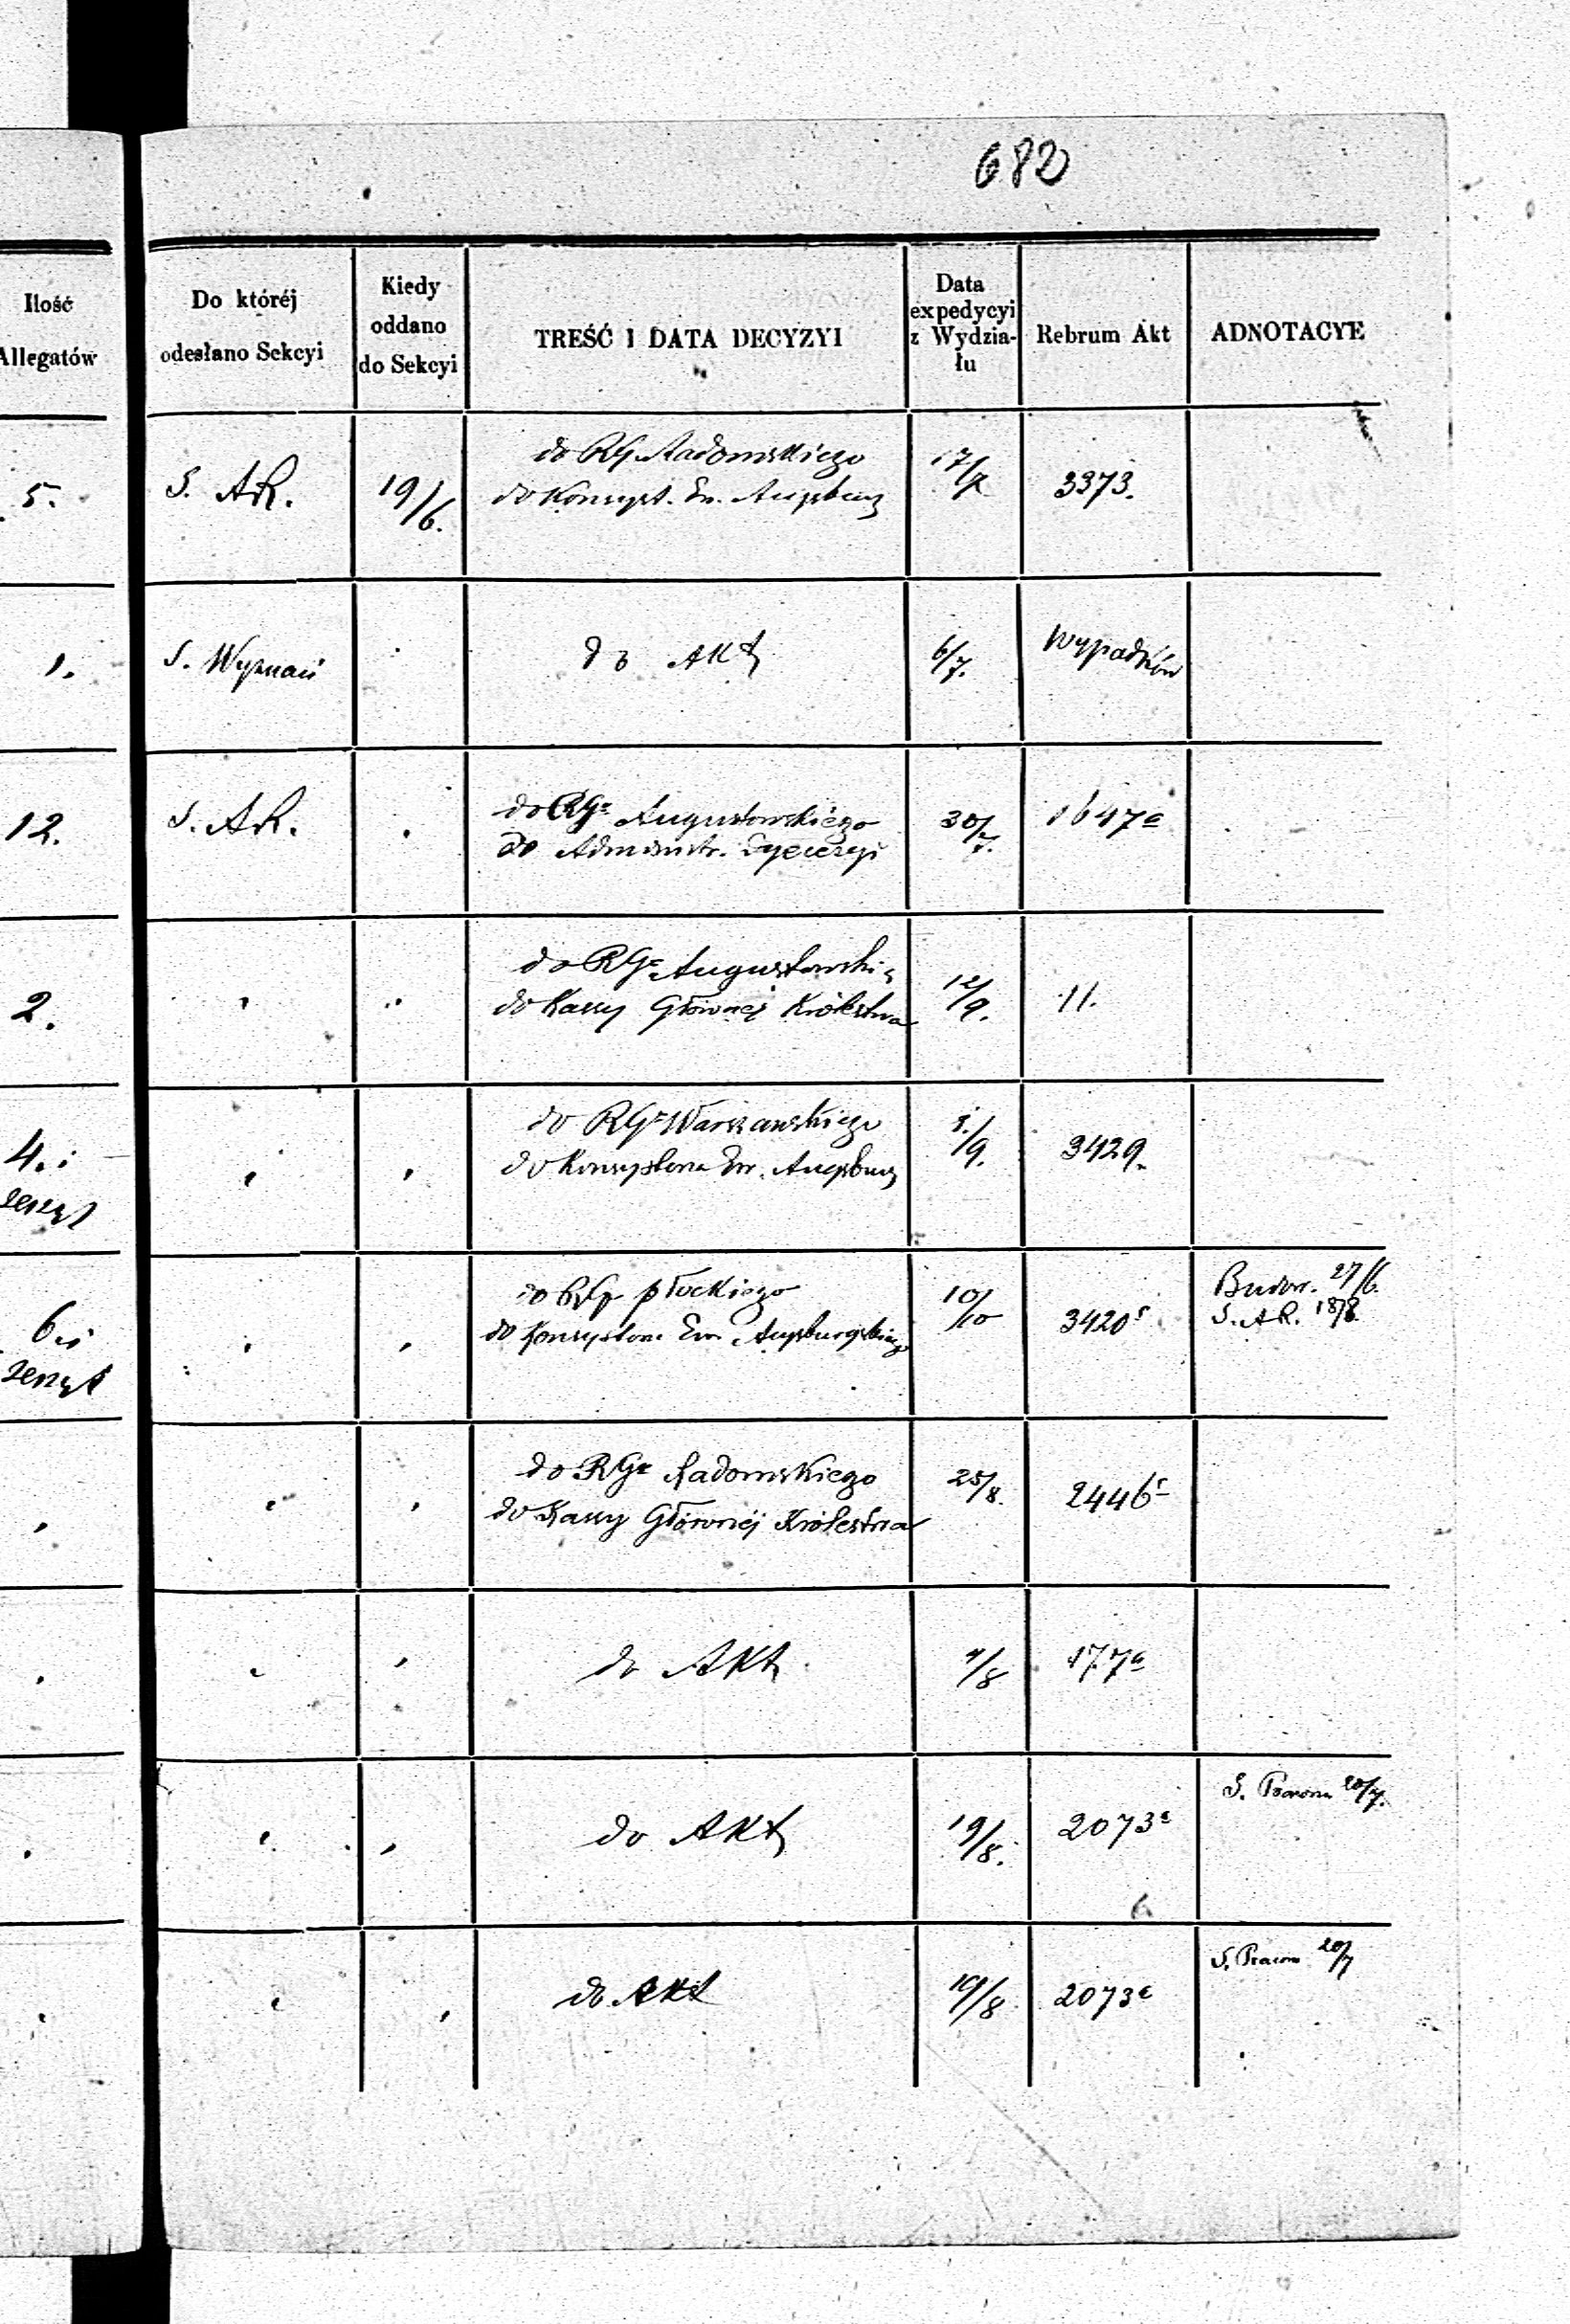 682
Ilość
Allegatów
Do któréj
odesłano Sekcyi
Kiedy
oddano
do Sekcyi
TREŚĆ I DATA DECYZYI
Data
expedycyi
z Wydzia-
łu
Rebrum Akt
ADNOTACYE
5.
S. AR.
19/6.
do RG Radomskiego
do Konsyst. Ew. Augsburg
17/7
3373.
1.
S. Wyznań
do Akt
6/7.
Wypadków
12.
S. AR.
do RGo Augustowskiego
do Administr. Dyecezyi
30/7.
1647a
2.
do RGo Augustowskie
do Kassy Głównéj Królestwa
12/9.
11.
4. i
zeszyt
do RGo Warszawskiego
do Konsystorza Ew. Augsburg
/9.
3429.
6. i
zeszyt
do RG Płockiego
do Konsystorza Ew. Augsburgskiego
10/10
3420
Budow. 27/6.
S. AR. 18/8.
do RGo Radomskiego
do Kassy Głównéj Królestwa
25/8.
2446
do Akt
4/8
177a
do Akt
19/8.
2073c
S. 20/7.
do Akt
19/8
2073c
S. 20/7